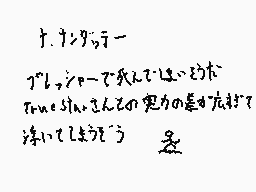 ナ.ナンダッテー
プレッシャーで死んでしまいそうだ
True starさんとの実力の差が広すぎて
泣いてしまうぞう